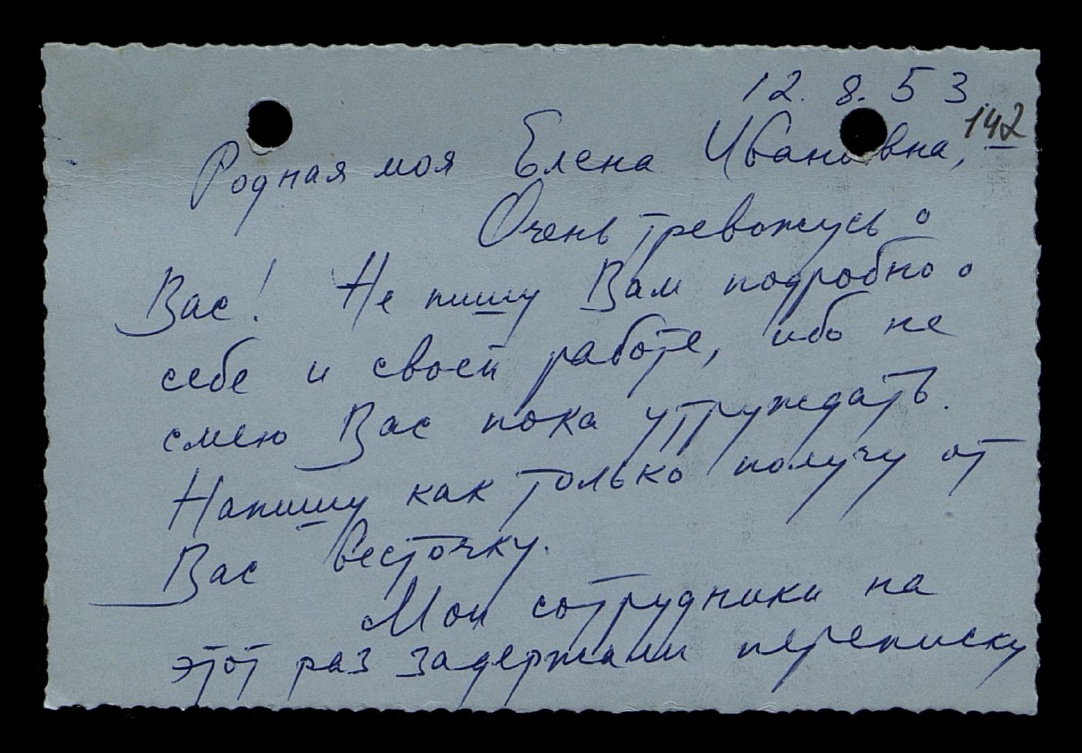 12. 8. 53
142
Родная моя Елена Ивановна,
Очень тревожусь о
Вас! Не пишу Вам подробно о
себе и своей работе, ибо не
смею Вас пока утруждать.
Напишу как только получу от
Вас весточку.
Мои сотрудники на
этот раз задержали переписку